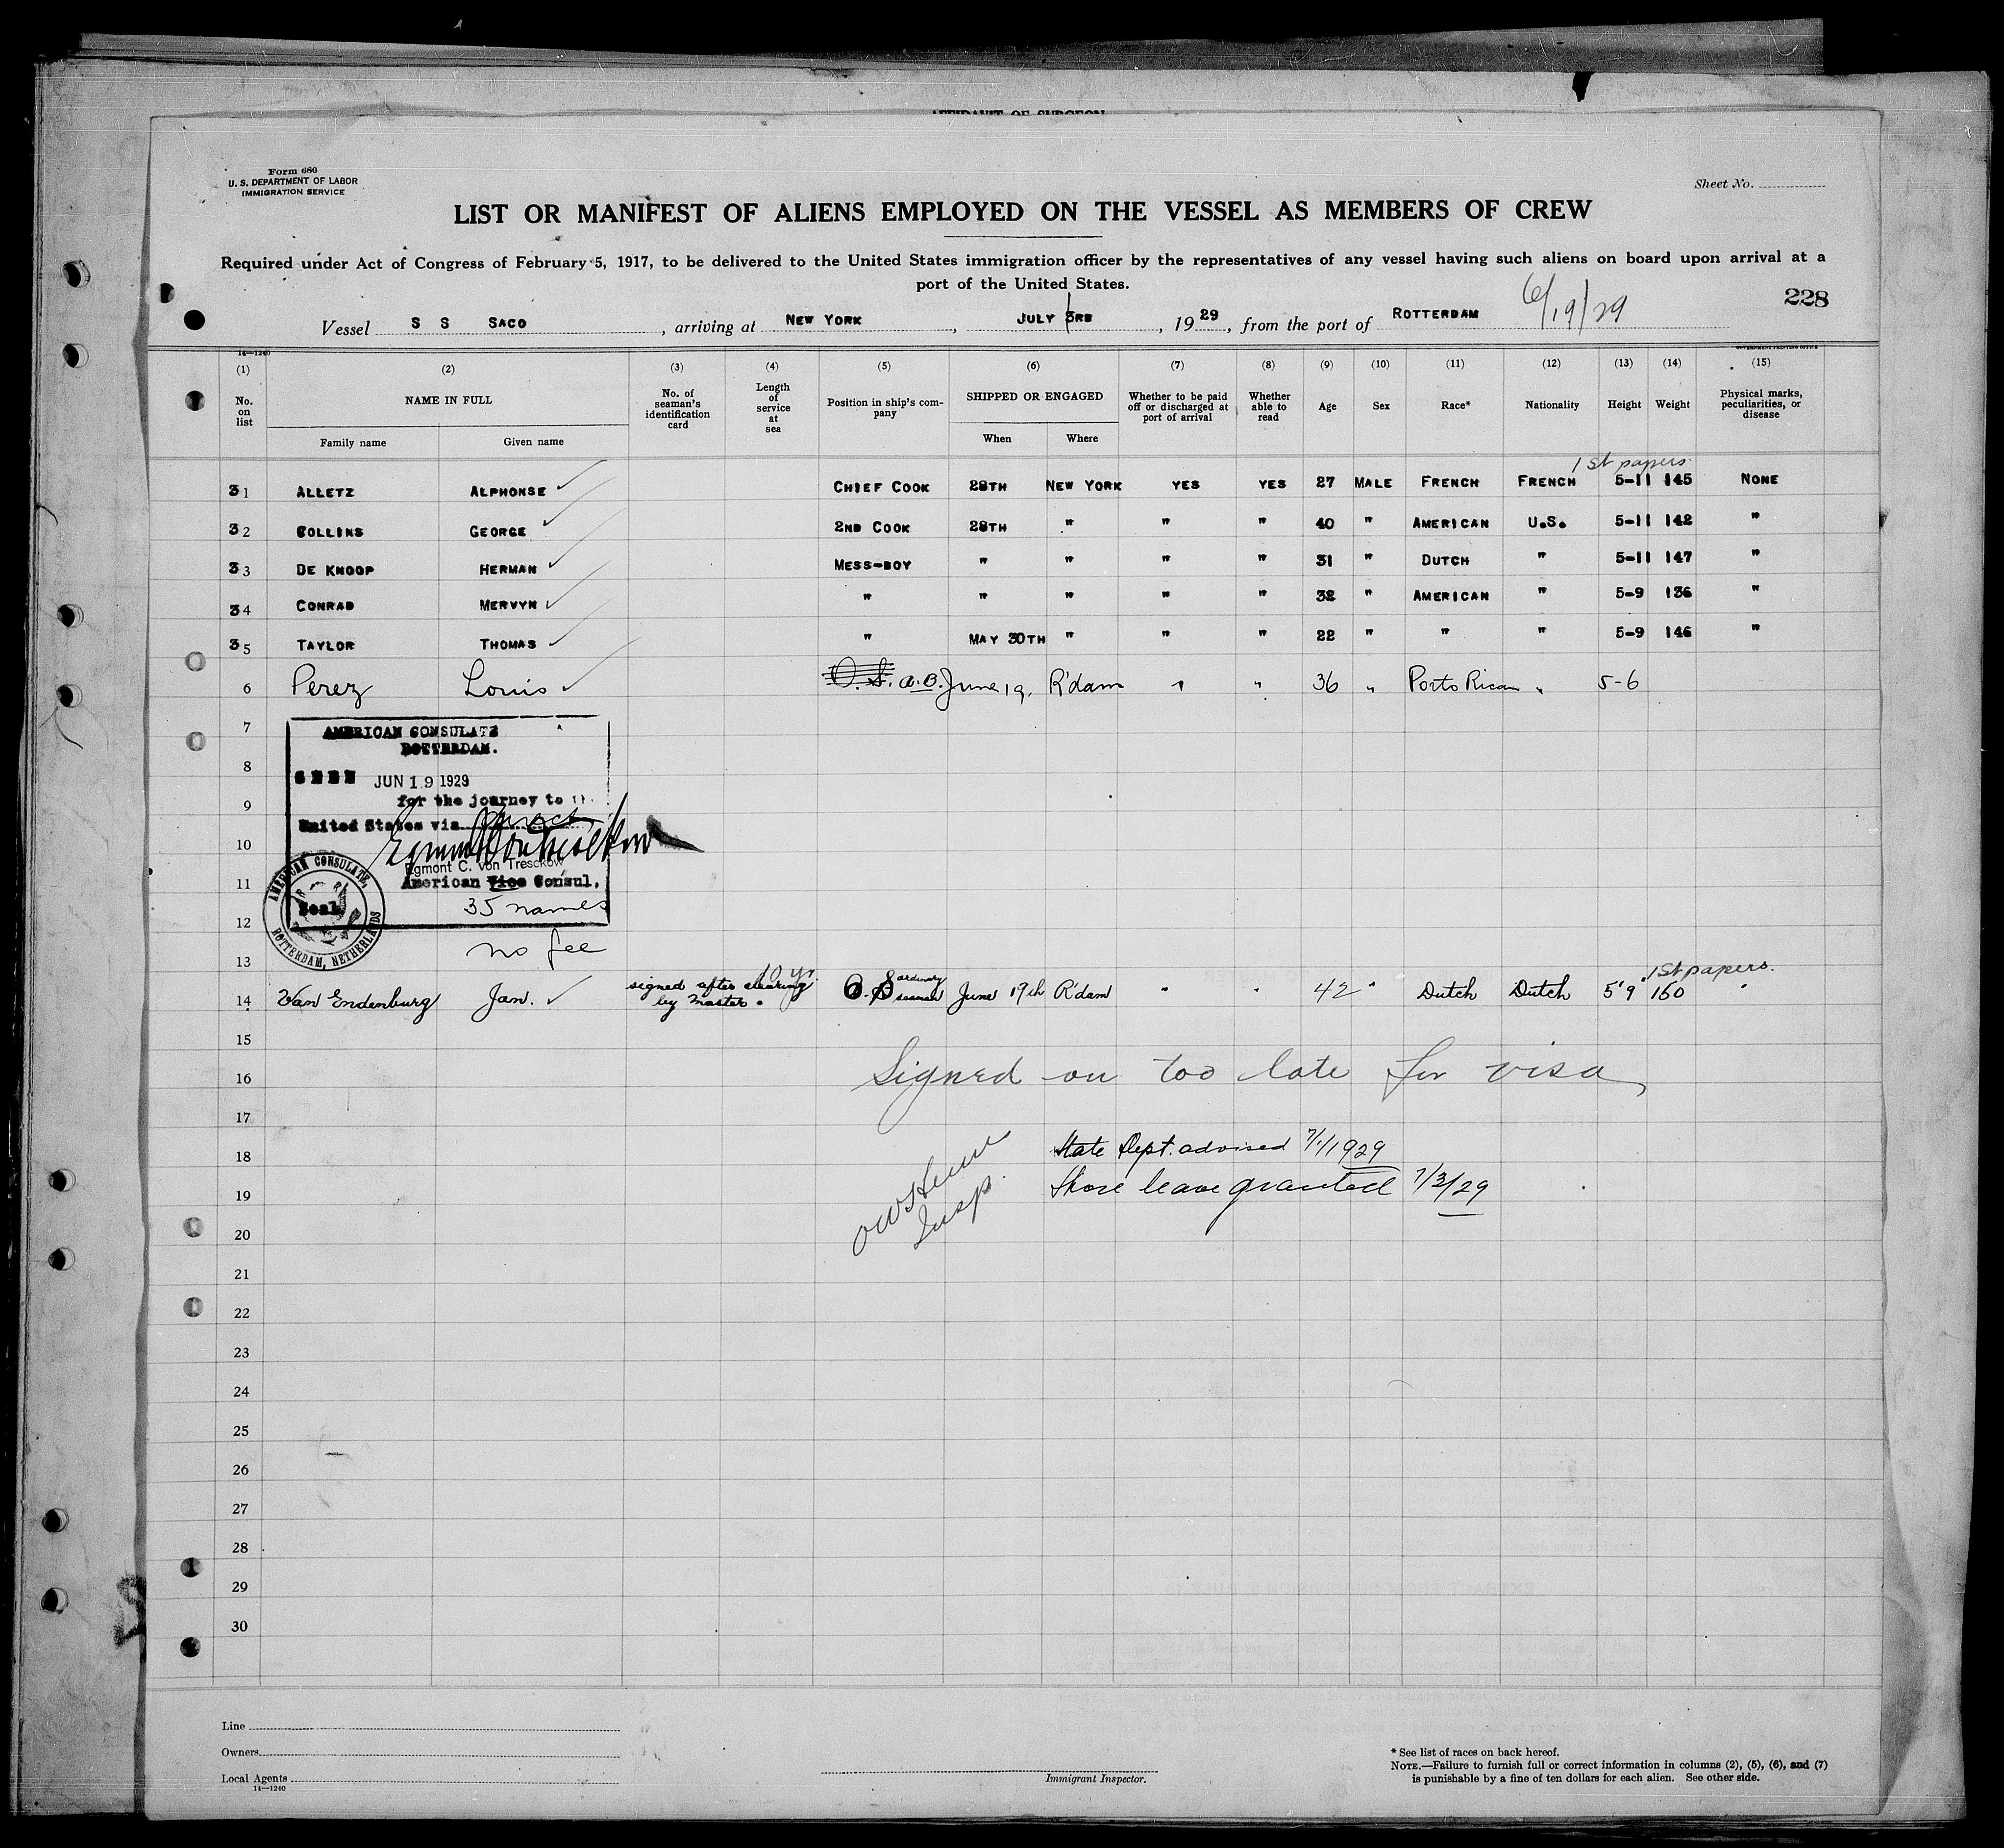 AFFIDAVIT OF SURGEON
Form 680
U. S. DEPARTMENT OF LABOR
IMMIGRATION SERVICE
Sheet No.
LIST OR MANIFEST OF ALIENS EMPLOYED ON THE VESSEL AS MEMBERS OF CREW
Required under Act of Congress of February 5, 1917, to be delivered to the United States immigration officer by the representatives of any vessel having such aliens on board upon arrival at a
port of the United States.
6/19/29
228
Vessel S S SACO, arriving at NEW YORK, JULY 3RD, 1929, from the port of ROTTERDAM
14—1240
GOVERNMENT PRINTING OFFICE
(1) (2) (3) (4) (5) (6) (7) (8) (9) (10) (11) (12) (13) (14) (15)
No. on list
NAME IN FULL
Family name
Given name
No. of seaman's identification card
Length of service at sea
Position in ship's company
SHIPPED OR ENGAGED
When
Where
Whether to be paid off or discharged at port of arrival
Whether able to read
Age
Sex
Race*
Nationality
Height
Weight
Physical marks, peculiarities, or disease
1st papers.
31 ALLETZ ALPHONSE CHIEF COOK 28TH NEW YORK YES YES 27 MALE FRENCH FRENCH 5-11 145 NONE
32 COLLINS GEORGE 2ND COOK 28TH " " " 40 " AMERICAN U.S. 5-11 142 "
33 DE KNOOP HERMAN MESS-BOY " " " " 31 " DUTCH " 5-11 147 "
34 CONRAD MERVYN " " " " " 32 " AMERICAN " 5-9 136 "
35 TAYLOR THOMAS " MAY 30TH " " " 22 " " " 5-9 146 "
6 Perez Louis O.S. a.B. June 19, R'dam " " 36 " Porto Rican " 5-6
7
AMERICAN CONSULATE
ROTTERDAM.
8
SEEN JUN 19 1929
9
for the journey to
United States via direct
10
Egmont C. von Tresckow
11
American Vice Consul.
Seal
35 names
12
AMERICAN CONSULATE, ROTTERDAM, NETHERLANDS
no fee
13
10 yr.
1st papers.
14 Van Endenburg Jan. signed after clearing by master. O.S ordinary seaman June 19th R'dam " " 42 " Dutch Dutch 5'9" 160 "
15
16 Signed on too late for visa
17
18 State Dept. advised 7/1/1929
19 Shore leave granted 7/3/29
Insp.
20
21
22
23
24
25
26
27
28
29
30
Line
Owners
Local Agents
14—1240
Immigrant Inspector.
* See list of races on back hereof.
NOTE.—Failure to furnish full or correct information in columns (2), (5), (6), and (7)
is punishable by a fine of ten dollars for each alien. See other side.